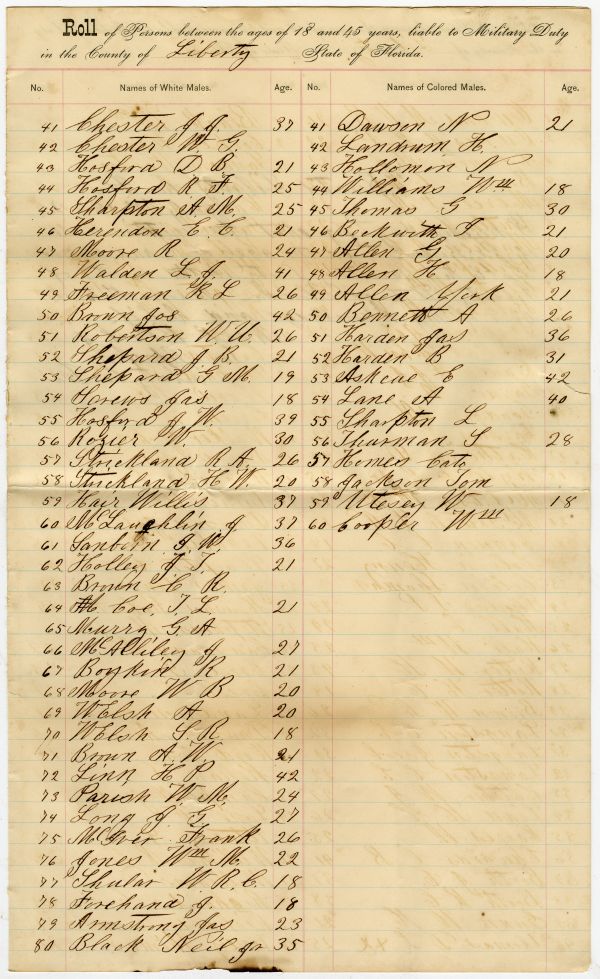 Roll of Persons between the ages of 18 and 45 years, liable to Military Duty
in the County of Liberty State of Florida.
No. Names of White Males. Age. No. Names of Colored Males. Age.
41 Chester J. J. 37 41 Dawson N 21
42 Chester W. G. 42 Landrum H.
43 Hosford D B. 21 43 Hollomon N
44 Hosford R F 25 44 Williams Wm 18
45 Sharpton A. M. 25 45 Thomas G 30
46 Herendon C. C. 21 46 Beckwith T 21
47 Moore R 24 47 Allen G 20
48 Walden L. J. 41 48 Allen H 18
49 Freeman R L 26 49 Allen York 21
50 Brown Jos 42 50 Bennett A 26
51 Robertson W. U. 26 51 Harden Jas 36
52 Shepard J B. 21 52 Harden B 31
53 Shepard G M. 19 53 Askeae E 42
54 Screws Jas 18 54 Lane A 40
55 Hosford J. W. 39 55 Sharpton L
56 Rozier W. 30 56 Thurman S 28
57 Strickland R A. 26 57 Homes Cato
58 Strickland H W. 20 58 Jackson Tom
59 Hair Willis 37 59 Utesey W 18
60 McLaughlin J 37 60 Cooper Wm
61 Sanborn J. W. 36
62 Holley J. T. 21
63 Brown C. R.
64 Mc Coe, T. L 21
65 Murry G. A
66 McAlliley J 27
67 Boykin R 21
68 Moore W B 20
69 Welsh A 20
70 Welsh S. R 18
71 Brown A. W. 21
72 Linn H P 42
73 Parish W. M. 24
74 Long J G 27
75 McIver Frank 26
76 Jones Wm M. 22
77 Shular W. R. C. 18
78 Forehand J. 18
79 Armstrong Jas 23
80 Black Neil Jr 35